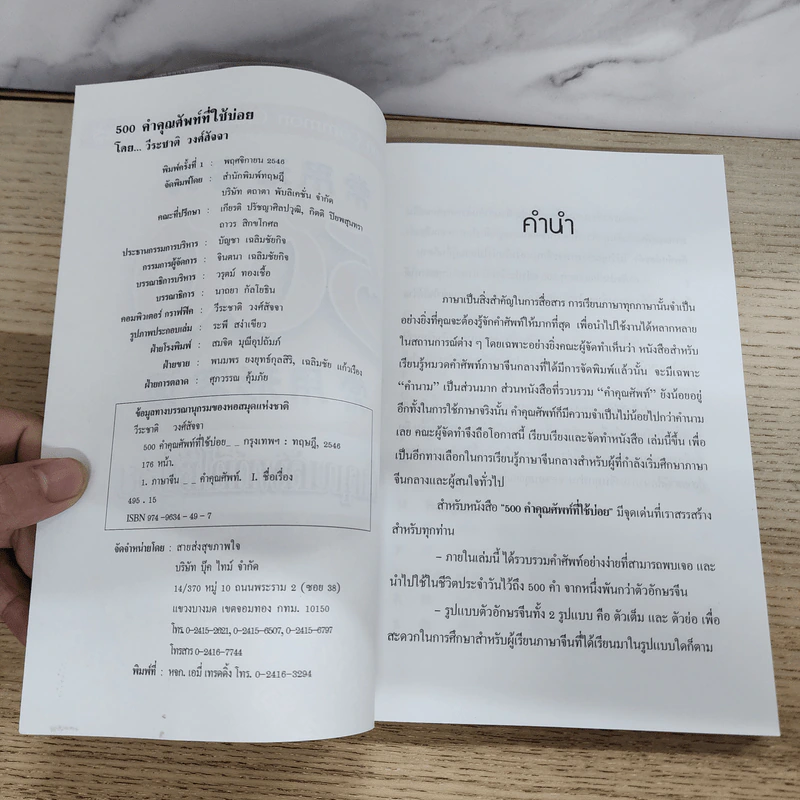 500 คำคุณศัพท์ที่ใช้บ่อย
โดย... วีระชาติ วงศ์สัจจา
พิมพ์ครั้งที่ 1 : พฤศจิกายน 2546
จัดพิมพ์โดย : สำนักพิมพ์ทฤษฎี
บริษัท ตถาตา พับลิเคชั่น จำกัด
คณะที่ปรึกษา : เกียรติ ปรัชญาศิลปวุฒิ, กิตติ ปิยพสุนทรา
ถาวร สิกขโกศล
ประธานกรรมการบริหาร : บัญชา เฉลิมชัยกิจ
กรรมการผู้จัดการ : จินตนา เฉลิมชัยกิจ
บรรณาธิการบริหาร : วรุตม์ ทองเชื้อ
บรรณาธิการ : นาถยา กัลโยธิน
คอมพิวเตอร์ กราฟฟิค : วีระชาติ วงศ์สัจจา
รูปภาพประกอบเล่ม : ระพี สง่าเขียว
ฝ่ายโรงพิมพ์ : สมจิต มุณีอุปถัมภ์
ฝ่ายขาย : พนมพร ยงยุทธ์กุลสิริ, เฉลิมชัย แก้วเรือง
ฝ่ายการตลาด : ศุภวรรณ คุ้มภัย
ข้อมูลทางบรรณานุกรมของหอสมุดแห่งชาติ
วีระชาติ วงศ์สัจจา
500 คำคุณศัพท์ที่ใช้บ่อย_ _ กรุงเทพฯ : ทฤษฎี, 2546
176 หน้า.
1. ภาษาจีน _ _ คำคุณศัพท์. I. ชื่อเรื่อง
495.15
ISBN 974-9634-49-7
จัดจำหน่ายโดย : สายส่งสุขภาพใจ
บริษัท บุ๊ค ไทม์ จำกัด
14/370 หมู่ 10 ถนนพระราม 2 (ซอย 38)
แขวงบางมด เขตจอมทอง กทม. 10150
โทร. 0-2415-2621, 0-2415-6507, 0-2415-6797
โทรสาร 0-2416-7744
พิมพ์ที่ : หจก. เอมี่ เทรดดิ้ง โทร. 0-2416-3294
คำนำ
ภาษาเป็นสิ่งสำคัญในการสื่อสาร การเรียนภาษาทุกภาษานั้นจำเป็น
อย่างยิ่งที่คุณจะต้องรู้จักคำศัพท์ให้มากที่สุด เพื่อนำไปใช้งานได้หลากหลาย
ในสถานการณ์ต่าง ๆ โดยเฉพาะอย่างยิ่งคณะผู้จัดทำเห็นว่า หนังสือสำหรับ
เรียนรู้หมวดคำศัพท์ภาษาจีนกลางที่ได้มีการจัดพิมพ์แล้วนั้น จะมีเฉพาะ
“คำนาม” เป็นส่วนมาก ส่วนหนังสือที่รวบรวม “คำคุณศัพท์” ยังน้อยอยู่
อีกทั้งในการใช้ภาษาจริงนั้น คำคุณศัพท์ก็มีความจำเป็นไม่น้อยไปกว่าคำนาม
เลย คณะผู้จัดทำจึงถือโอกาสนี้ เรียบเรียงและจัดทำหนังสือ เล่มนี้ขึ้น เพื่อ
เป็นอีกทางเลือกในการเรียนรู้ภาษาจีนกลางสำหรับผู้ที่กำลังเริ่มศึกษาภาษา
จีนกลางและผู้สนใจทั่วไป
สำหรับหนังสือ “500 คำคุณศัพท์ที่ใช้บ่อย” มีจุดเด่นที่เราสรรสร้าง
สำหรับทุกท่าน
– ภายในเล่มนี้ ได้รวบรวมคำศัพท์อย่างง่ายที่สามารถพบเจอ และ
นำไปใช้ในชีวิตประจำวันไว้ถึง 500 คำ จากหนึ่งพันกว่าตัวอักษรจีน
– รูปแบบตัวอักษรจีนทั้ง 2 รูปแบบ คือ ตัวเต็ม และ ตัวย่อ เพื่อ
สะดวกในการศึกษาสำหรับผู้เรียนภาษาจีนที่ได้เรียนมาในรูปแบบใดก็ตาม